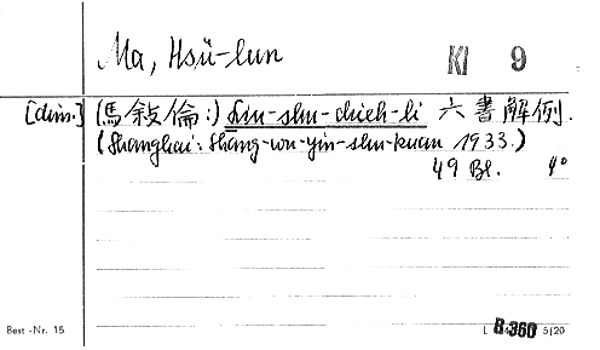 Ma, Hsü-lun
KI 9
[chin.] (馬敍倫:) Liu-shu-chieh-li 六書解例.
(Shanghai: Shang-wu-yin-shu-kuan 1933.)
49 Bl. 4°
Best.-Nr. 15
B 360 5|20